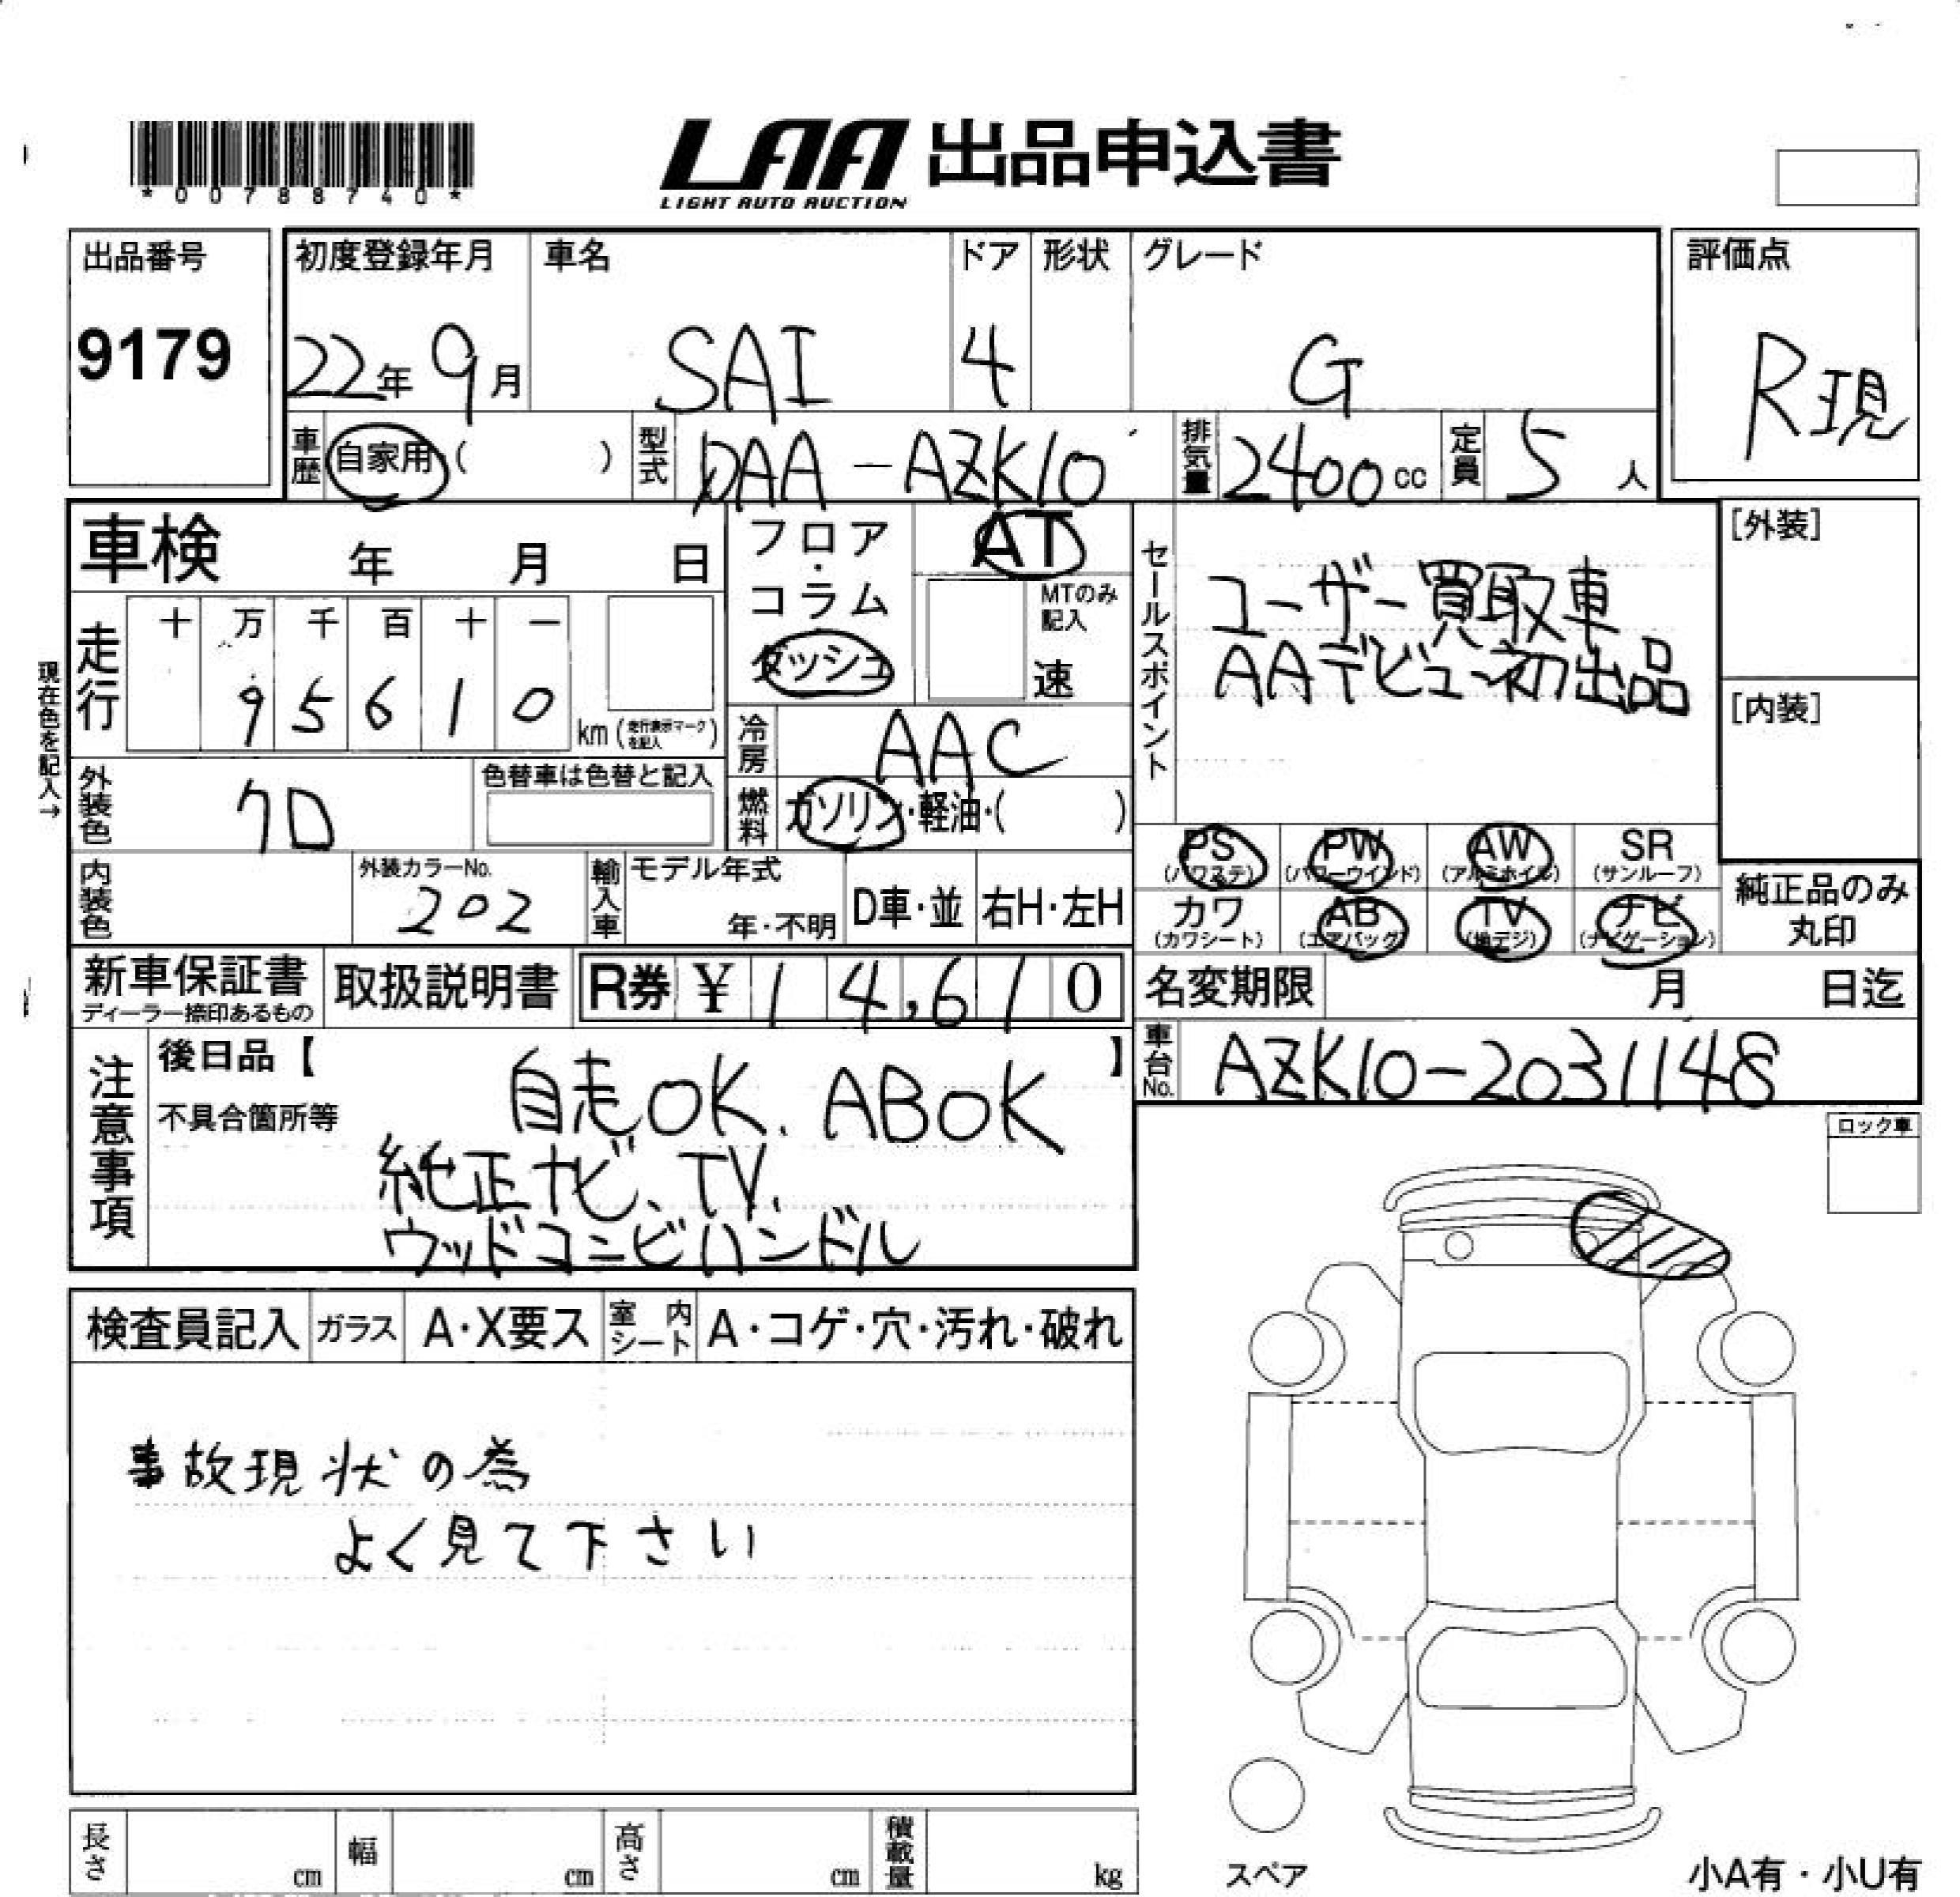 *00788740*
LAA 出品申込書
LIGHT AUTO AUCTION
出品番号
9179
初度登録年月
22年 9月
車名
SAI
ドア
4
形状
グレード
G
評価点
R現
車歴 自家用 ( )
型式 DAA-AZK10
排気量 2400cc
定員 5人
車検 年 月 日
フロア・コラム
ダッシュ
AT
MTのみ記入
速
セールスポイント
ユーザー買取車
AAデビュー初出品
[外装]
[内装]
現在色を記入→
走行
十 万 千 百 十 一
9 5 6 1 0
km (走行表示マークを記入)
冷房 AAC
外装色 クロ
色替車は色替と記入
燃料 ガソリン・軽油・( )
PS (パワステ)
PW (パワーウインド)
AW (アルミホイル)
SR (サンルーフ)
カワ (カワシート)
AB (エアバッグ)
TV (地デジ)
ナビ (ナビゲーション)
純正品のみ
丸印
内装色
外装カラーNo.
202
輸入車
モデル年式
年・不明
D車・並 右H・左H
新車保証書
ディーラー捺印あるもの
取扱説明書
R券 ¥14,610
名変期限 月 日迄
車台No. AZK10-2031148
注意事項
後日品【 】
不具合箇所等
自走OK. ABOK
純正ナビ、TV.
ウッドコンビハンドル
ロック車
検査員記入 ガラス A・X要ス 室内シート A・コゲ・穴・汚れ・破れ
事故現状の為
よく見て下さい
長さ cm 幅 cm 高さ cm 積載量 kg
スペア
小A有・小U有